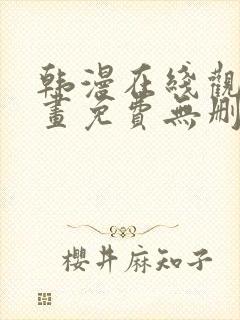 韩漫在线觀
畫免費無刪
櫻井麻知子